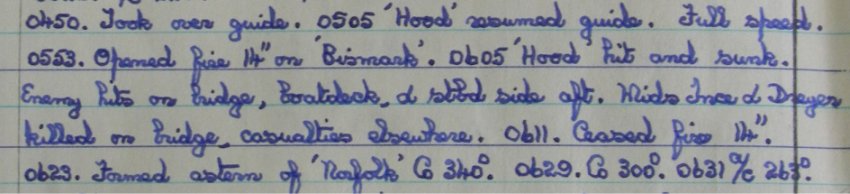 0450. Took over guide. 0505 'Hood' resumed guide. Full speed.
0553. Opened fire 14" on 'Bismark'. 0605 'Hood' hit and sunk.
Enemy hits on bridge, boatdeck, & stbd side aft. Mids Ince & Dreyer
killed on bridge, casualties elsewhere. 0611. Ceased fire 14".
0623. Formed astern of 'Norfolk' Co 340°. 0629. Co 300°. 0631 a/c 263°.